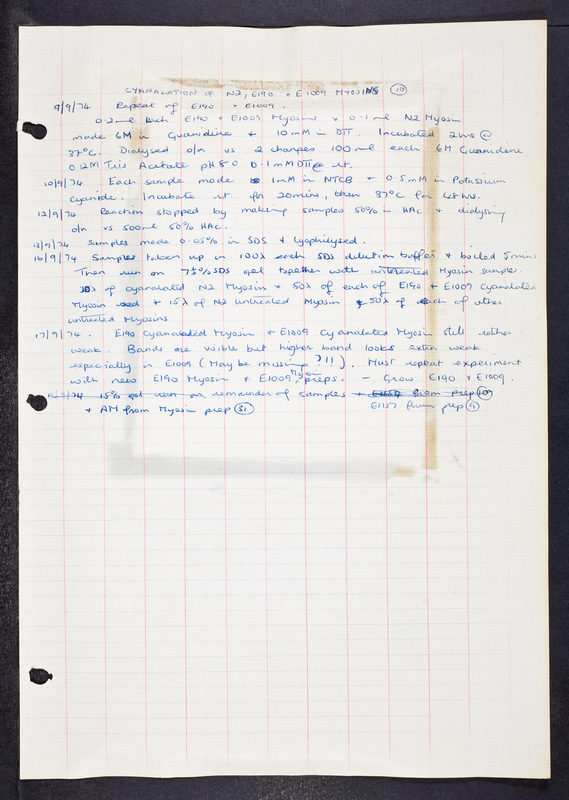 CYANALATION OF N2, E190 + E1009 MYOSINS (10)
9/9/74 Repeat of E190 + E1009.
0.2ml each E190 + E1009 Myosins + 0.1ml N2 Myosin
made 6M in Guanidine + 10mM in DTT. Incubated 2hrs @
37°C. Dialysed o/n vs 2 changes 100ml each 6M Guanidine
0.2M Tris Acetate pH 8.0 0.1mM DTT @ rt.
10/9/74 Each sample made 1mM in NTCB + 0.5mM in Potassium
cyanide. Incubate rt for 20mins, then 37°C for 48hrs.
12/9/74 Reaction stopped by making samples 50% in HAc + dialysing
o/n vs 500ml 50% HAc.
13/9/74 Samples made 0.05% in SDS + lyophilysed.
16/9/74 Samples taken up in 100λ each SDS dilution buffer + boiled 5mins.
Then run on 7½% SDS gel together with untreated Myosin samples.
λ of cyanalated N2 Myosin + 50λ of each of E190 + E1009 Cyanalated
Myosin used + 15λ of N2 untreated Myosin + 50λ of each of other
untreated Myosins.
17/9/74. E190 Cyanalated Myosin + E1009 Cyanalated Myosin still rather
weak. Bands are visible but higher band looks extra weak
especially in E1009 (May be missing?!!). Must repeat experiment
with new E190 Myosin + E1009 Myosin preps. - Grow E190 + E1009.
/9/74 15% gel run on remainder of samples + from prep
+ AM from Myosin prep (31) E1157 from prep (9)